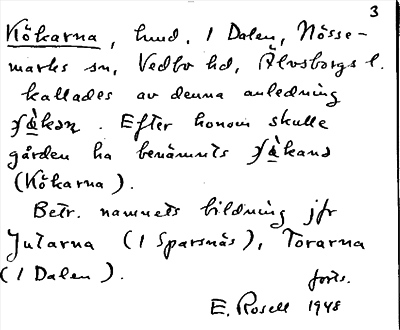 3
Kökarna, hmd. i Dalen, Nösse-
marks sn, Vedbo hd, Älvsborgs l.
kallades av denna anledning
. Efter honom skulle
gården ha benämnts
(Kökarna).
Betr. namnets bildning jfr
Jutarna (i Sparsnäs), Torarna
(i Dalen).
forts.
E. Rosell 1948